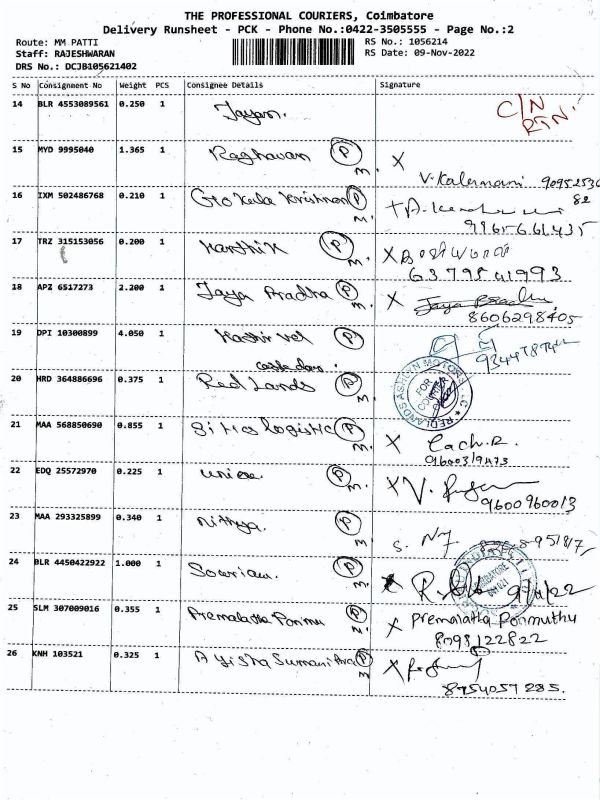 THE PROFESSIONAL COURIERS, Coimbatore
Delivery Runsheet - PCK - Phone No.:0422-3505555 - Page No.:2
Route: MM PATTI RS No.: 1056214
Staff: RAJESHWARAN RS Date: 09-Nov-2022
DRS No.: DCJB105621402
S No Consignment No Weight PCS Consignee Details Signature
14 BLR 4553089561 0.250 1 Jayan. C/N
RTN
15 MYD 9995040 1.365 1 Raghavan P M.
V. Kalermani
16 IXM 502486768 0.210 1 Gokula Krishnan P M.
17 TRZ 315153056 0.200 1 Karthik P M. X
6379541993
18 APZ 6517273 2.200 1 Jaya Pradha P M. X Jaya Pradha
8606298405
19 DPI 10300899 4.050 1 P
20 HRD 364886696 0.375 1 Red Lands P M. FOR
21 MAA 568850690 0.855 1 P M. X
22 EDQ 25572970 0.225 1 P M. X V.
9600960013
23 MAA 293325899 0.340 1 Nithya. P M. S.
24 BLR 4450422922 1.000 1 P M. 9/11/22
25 SLM 307009016 0.355 1 Premalatha Ponmu P M. X Premalatha Ponmuthu
8098122822
26 KNH 103521 0.325 1 P M X
8754057285.